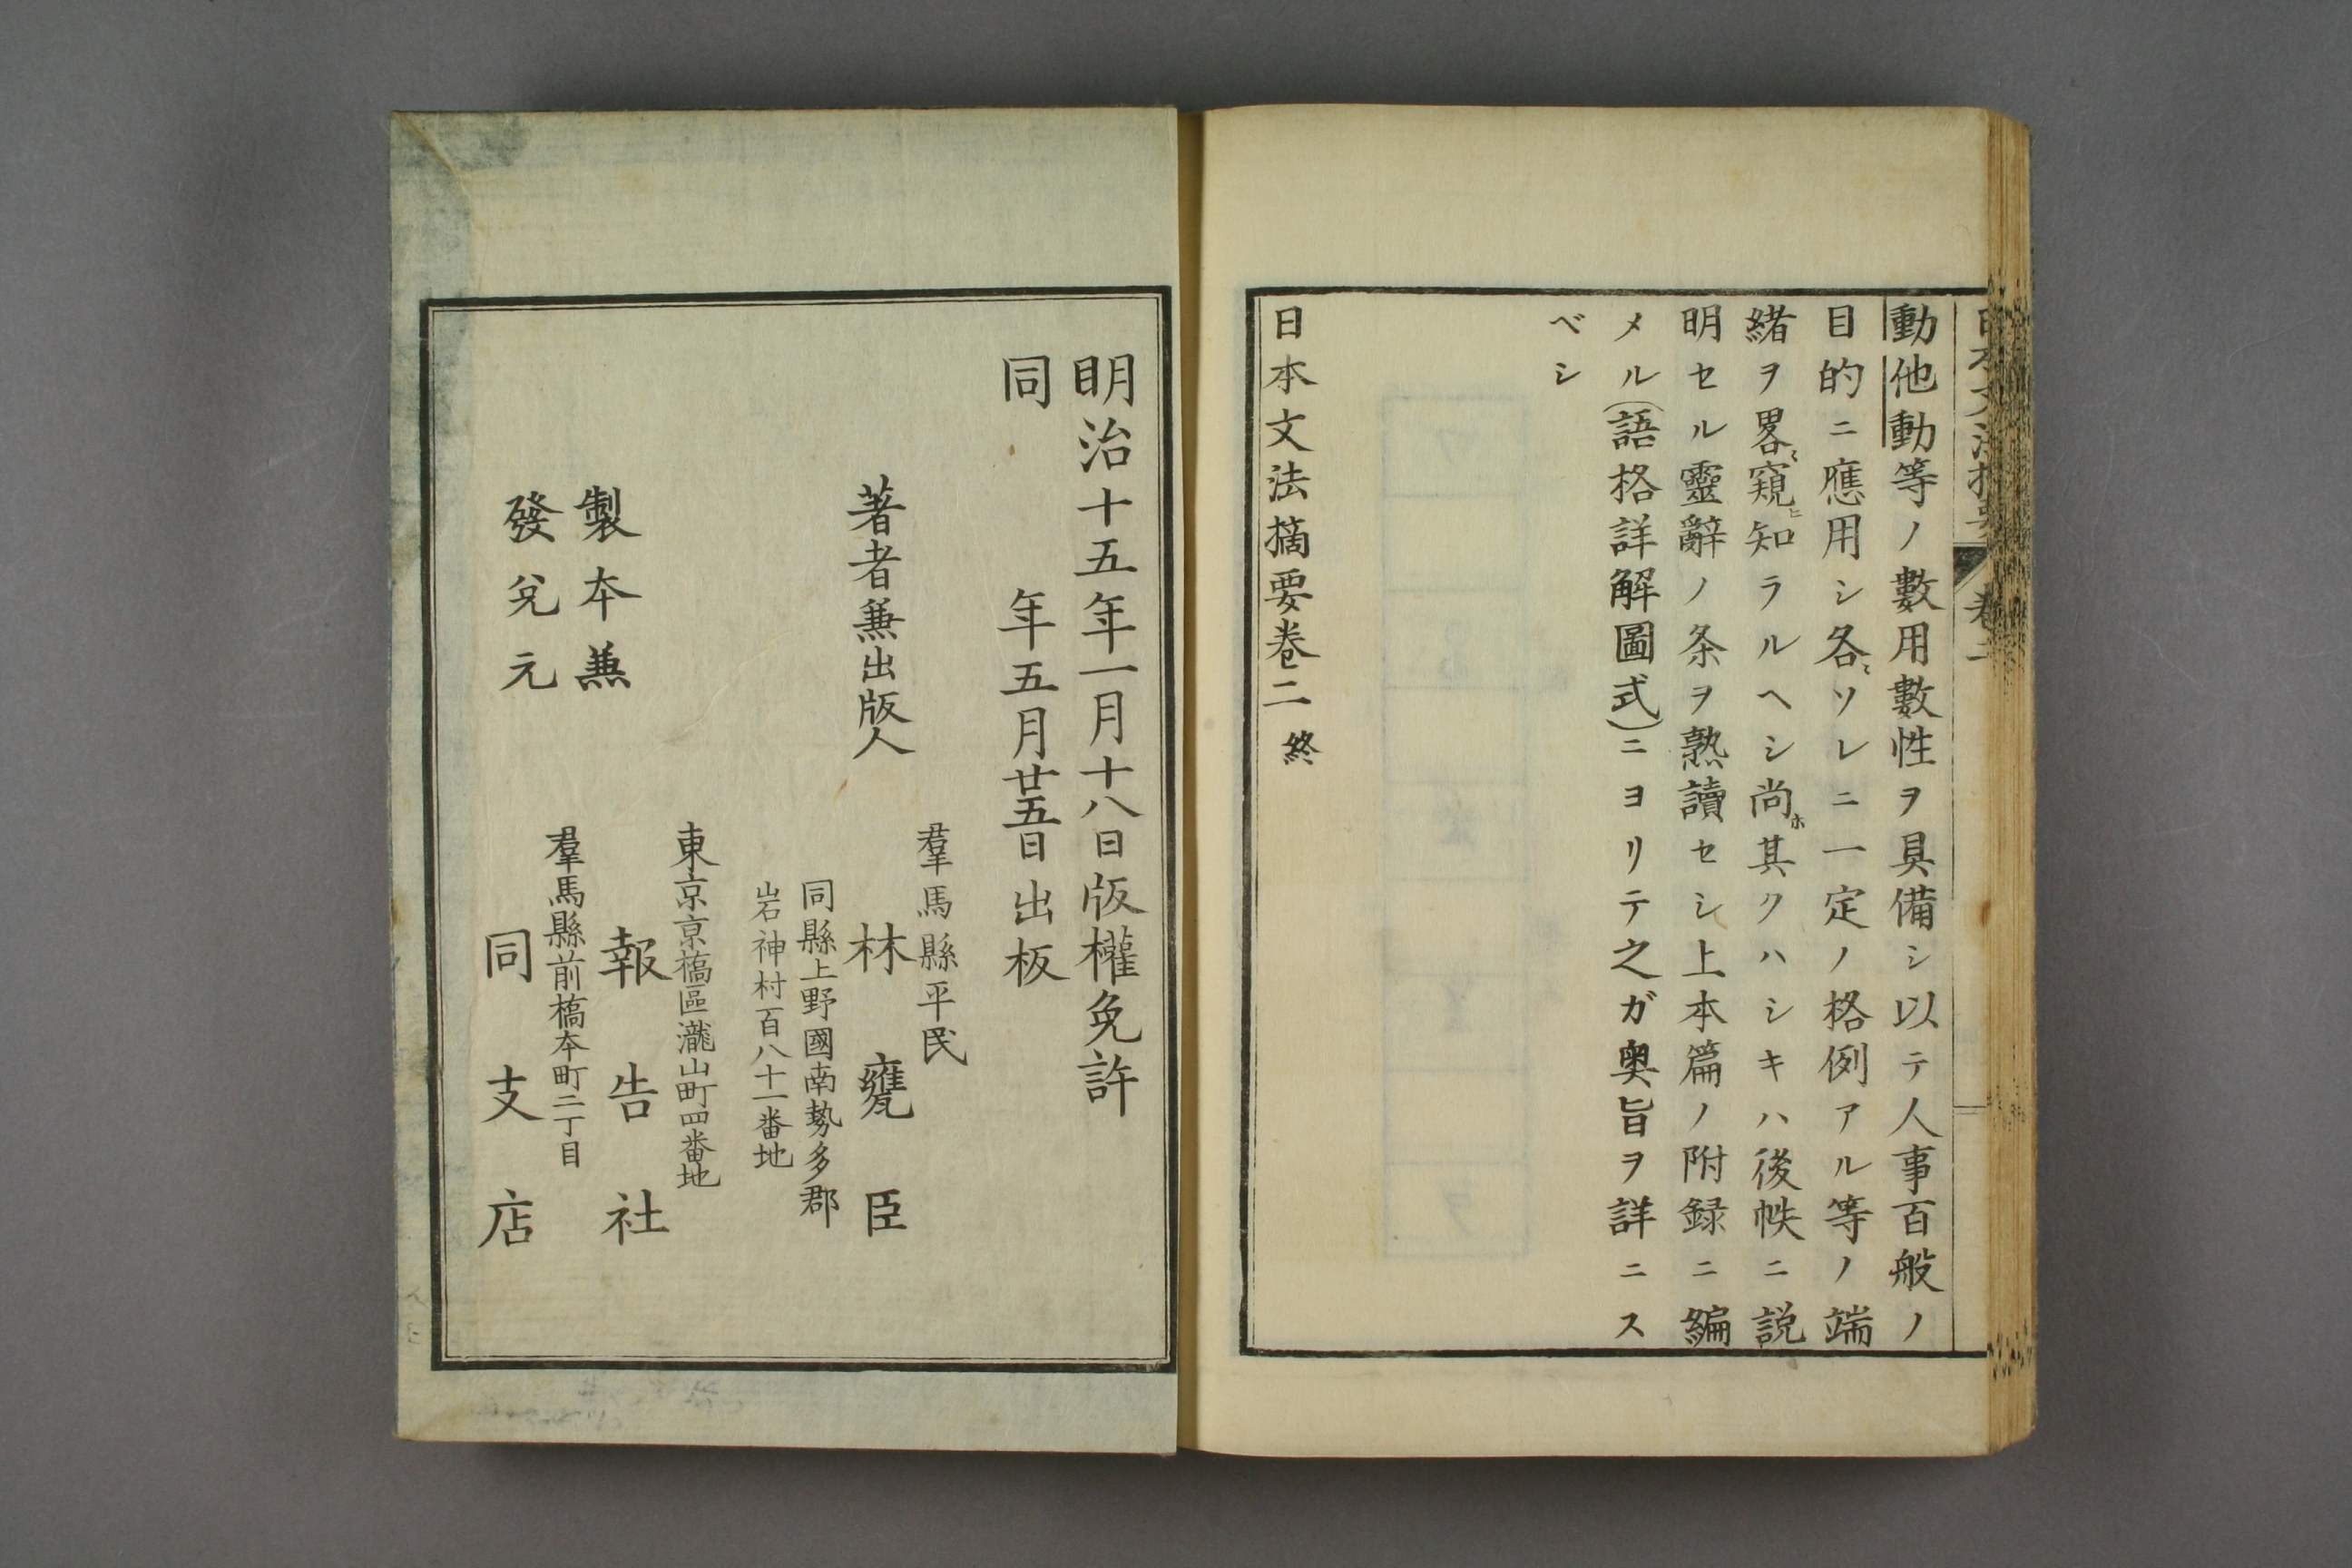 動他動等ノ數用數性ヲ具備シ以テ人事百般ノ
目的ニ應用シ各〻ソレニ一定ノ格例アル等ノ端
緒ヲ畧〻窺ヒ知ラルヘシ尚ホ其クハシキハ後帙ニ説
明セル靈辭ノ条ヲ熟讀セシ上本篇ノ附録ニ編
メル(語格詳解圖式)ニヨリテ之ガ奥旨ヲ詳ニス
ベシ
日本文法摘要卷二 終
明治十五年一月十八日版權免許
同 年五月廿五日出板
著者兼出版人
羣馬縣平民
林甕臣
同縣上野國南勢多郡
岩神村百八十一番地
製本兼
發兌元
東京京橋區瀧山町四番地
報告社
羣馬縣前橋本町二丁目
同支店